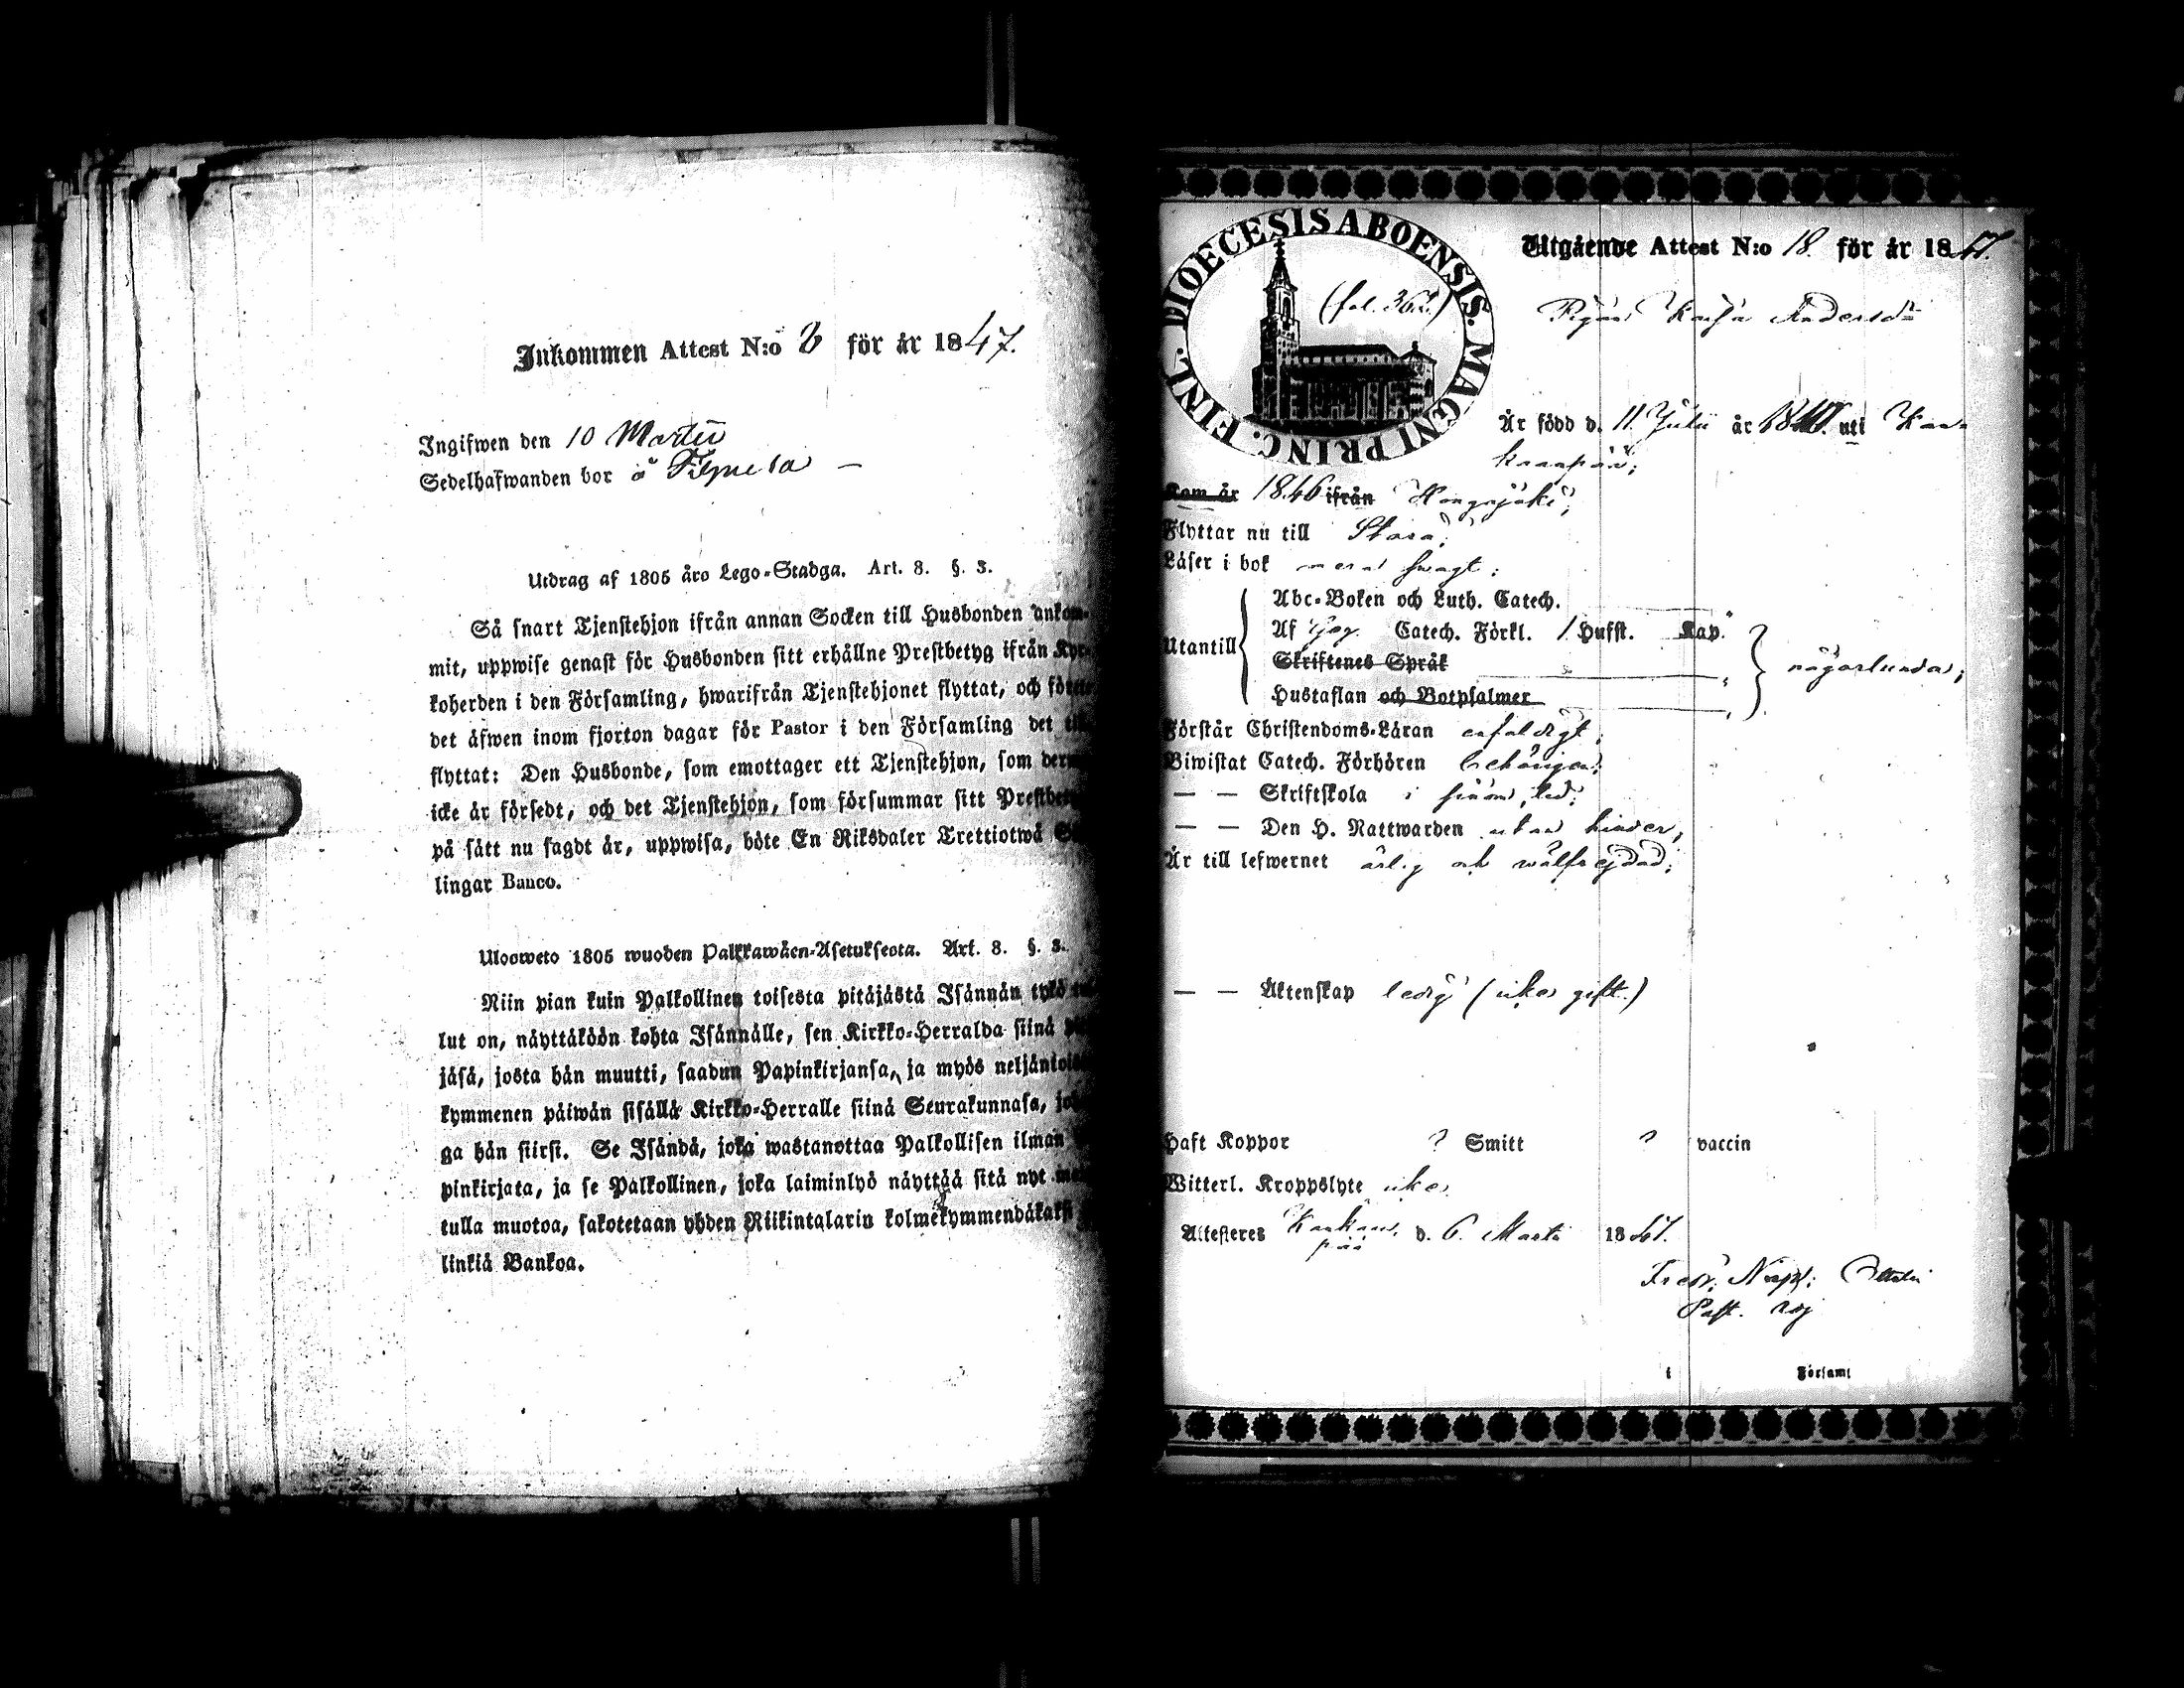 Inkommen Attest N:o 6 för år 1847.
Ingifwen den 10 Martii
Sedelhafwanden bor å
Utdrag af 1805 års Lego-Stadga. Art. 8. §. 3.
Så snart Tjenstehjon ifrån annan Socken till Husbonden ankom-
mit, uppwise genast för Husbonden sitt erhållne Prestbetyg ifrån Kyr-
koherden i den Församling, hwarifrån Tjenstehjonet flyttat, och
det äfwen inom fjorton dagar för Pastor i den Församling det
flyttat: Den Husbonde, som emottager ett Tjenstehjon, som
icke är försedt, och det Tjenstehjon, som försummar sitt
på sätt nu sagdt är, uppwisa, böte En Riksdaler Trettiotwå
lingar Banco.
Ulosweto 1805 wuoden Palkkawäen-Asetuksesta. Art. 8. §. 3.
Niin pian kuin Palkollinen toisesta pitäjästä Isännän tykö
lut on, näyttäköön kohta Isännälle, sen Kirkko-Herralda siinä
jäsä, josta hän muutti, saadun Papinkirjansa, ja myös
kymmenen päiwän sisällä Kirkko-Herralle siinä Seurakunnasa,
ga hän siirsi. Se Isändä, joka wastanottaa Palkollisen ilman
pinkirjata, ja se Palkollinen, joka laiminlyö näyttää sitä nyt
tulla muotoa, sakotetaan yhden Riikintalarin kolmekymmendäkaksi
linkiä Bankoa.
DIOECESIS ABOENSIS. MAGNI PRINC. FINL.
(fol. 362.)
Utgående Attest N:o 18. för år 1847.
Pigan Kajsa Andersdr
Är född d. 11 Julii år uti Kan-
kaanpää;
Kom år 1846 ifrån Hongojoki;
Flyttar nu till
Läser i bok swagt;
Utantill
Abc-Boken och Luth. Catech.
Af Catech. Förkl. 1 Hufst. Kap.
Skriftenes Språk
Hustaflan och Botpsalmer
någorlunda;
Förstår Christendoms-Läran enfaldigt;
Biwistat Catech. Förhören behörigen;
— — Skriftskola i
— — Den H. Nattwarden utan hinder;
Är till lefwernet ärlig och wälfrejdad;
— — Äktenskap ledig (icke gift.)
Haft Koppor ? Smitt ? vaccin
Witterl. Kroppslyte icke
Attesteres Kankaan-
pää d. 6. Martii 1847.
Past.
i Församl